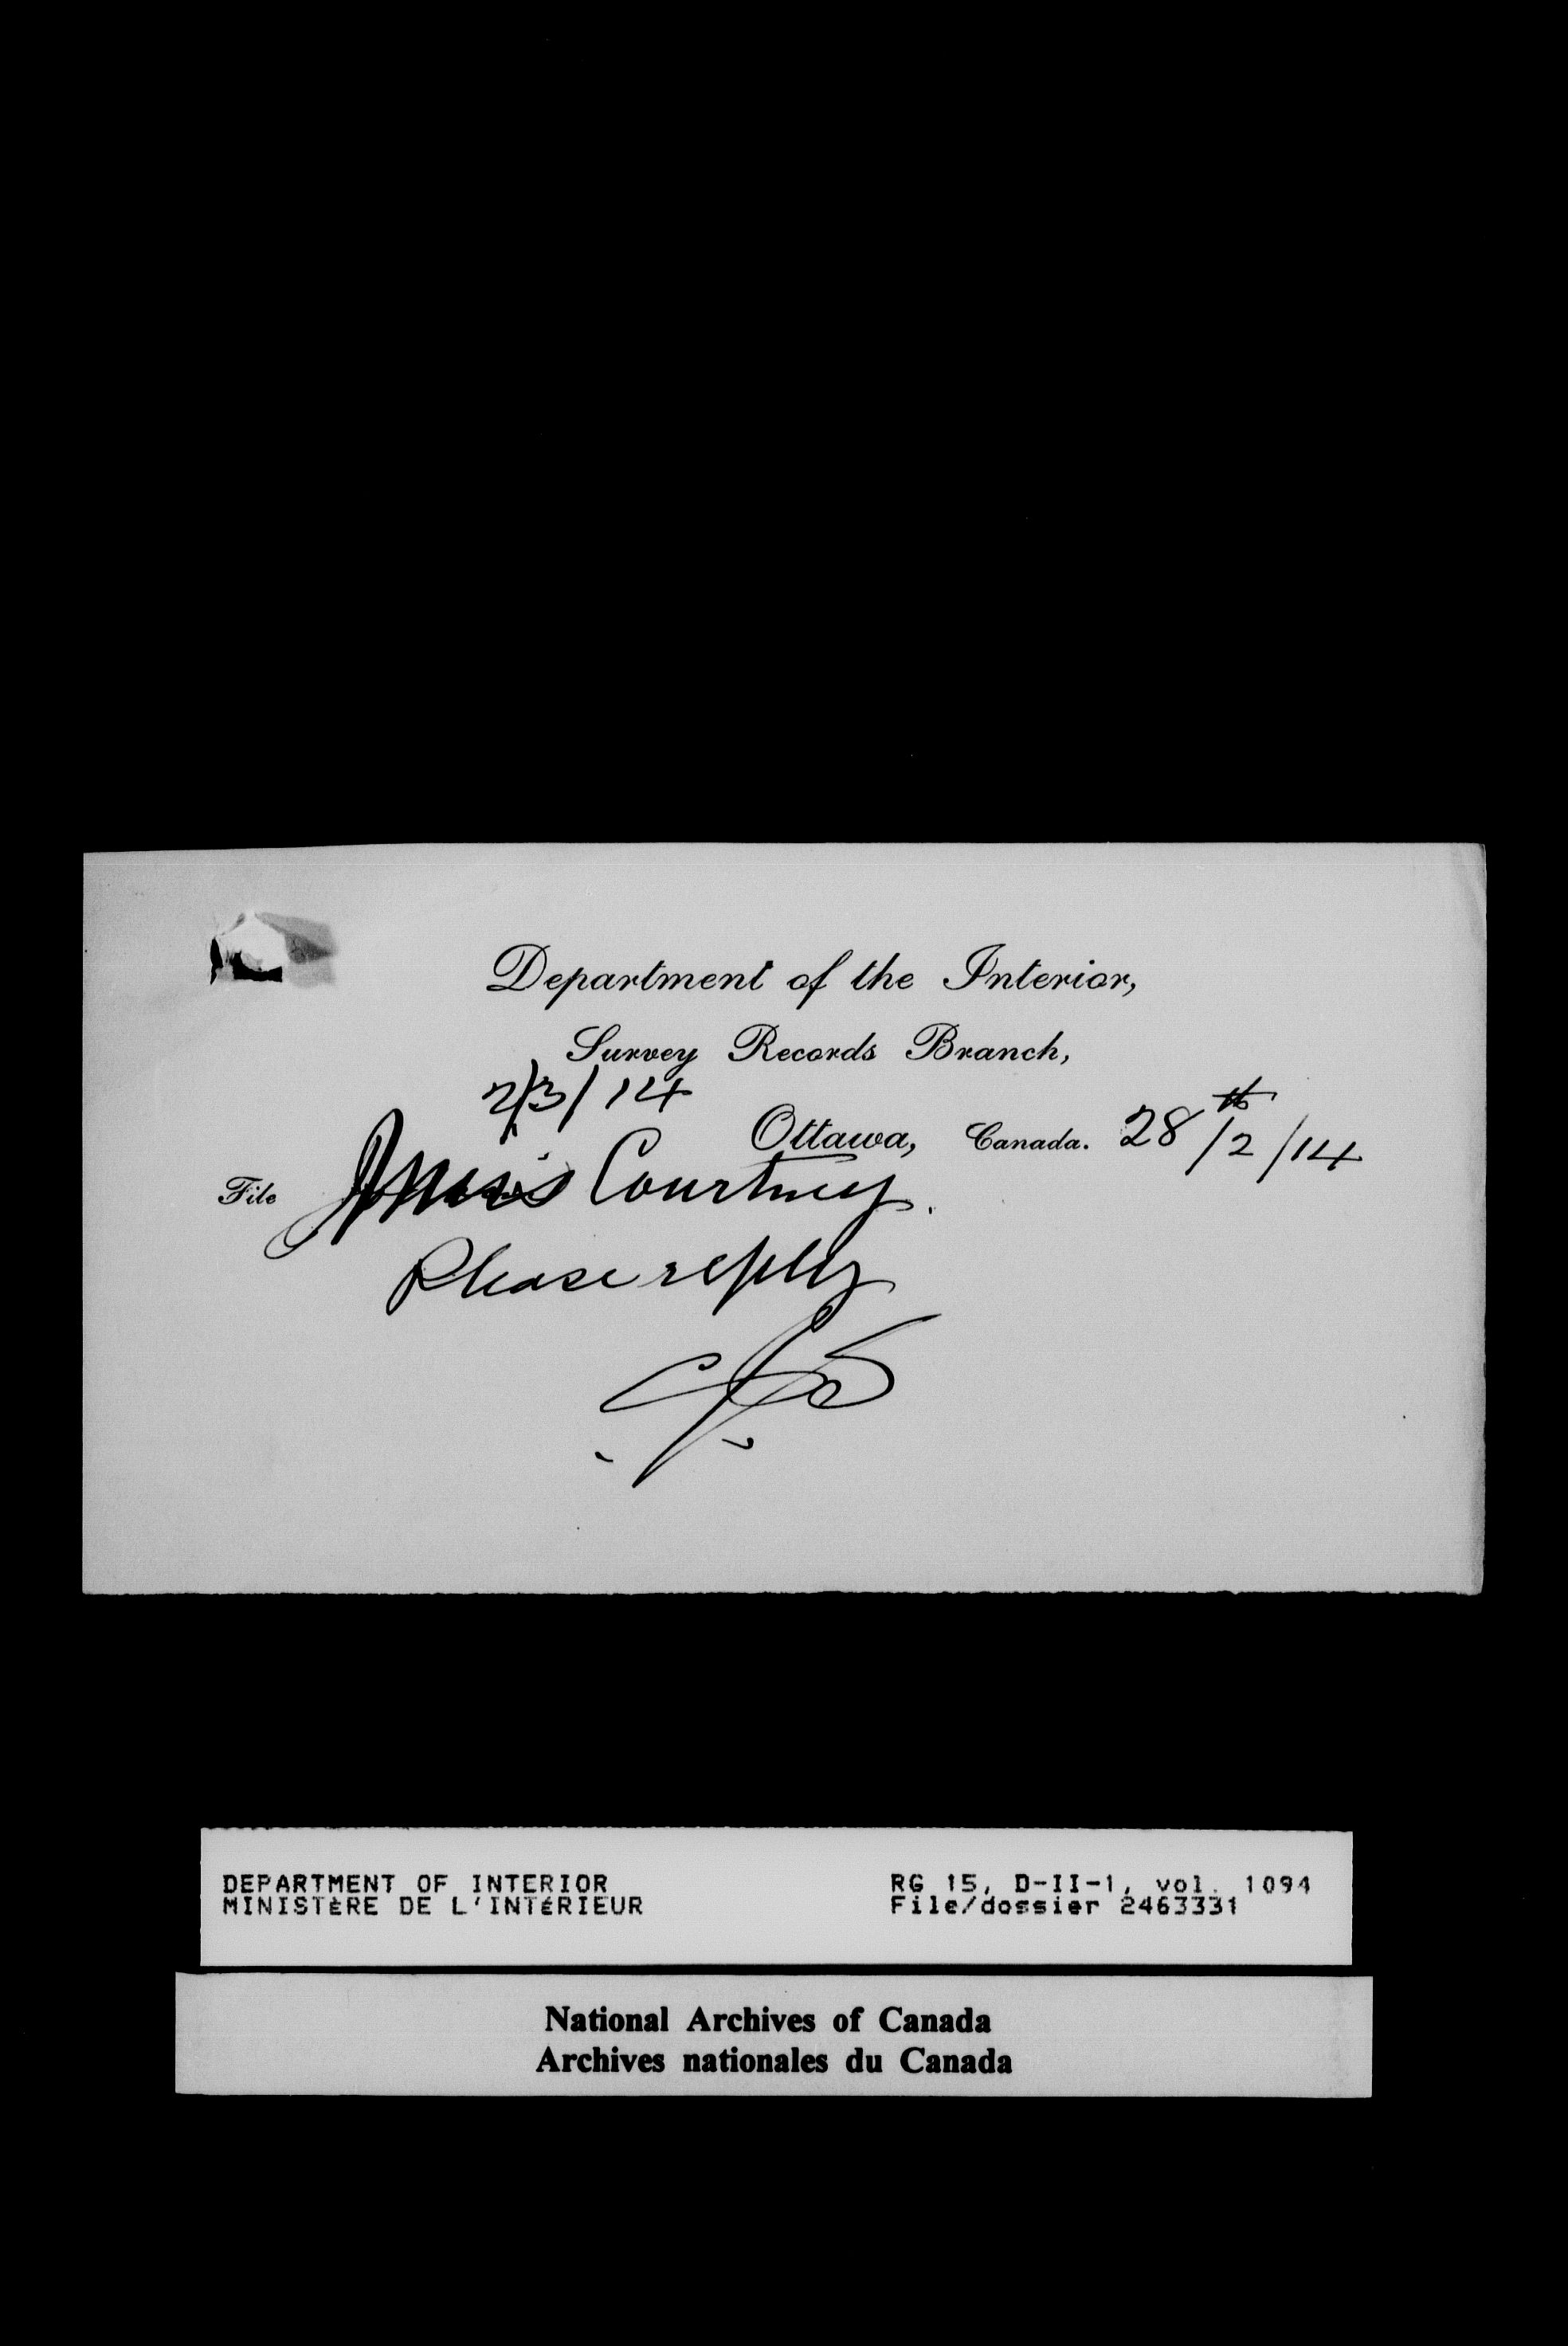 Department of the Interior,
Survey Records Branch,
2/3/14
Ottawa, Canada. 28th/2/14
File Courtney.
Please reply
DEPARTMENT OF INTERIOR
MINISTÈRE DE L'INTÉRIEUR
RG 15, D-II-1, vol. 1094
File/dossier 2463331
National Archives of Canada
Archives nationales du Canada